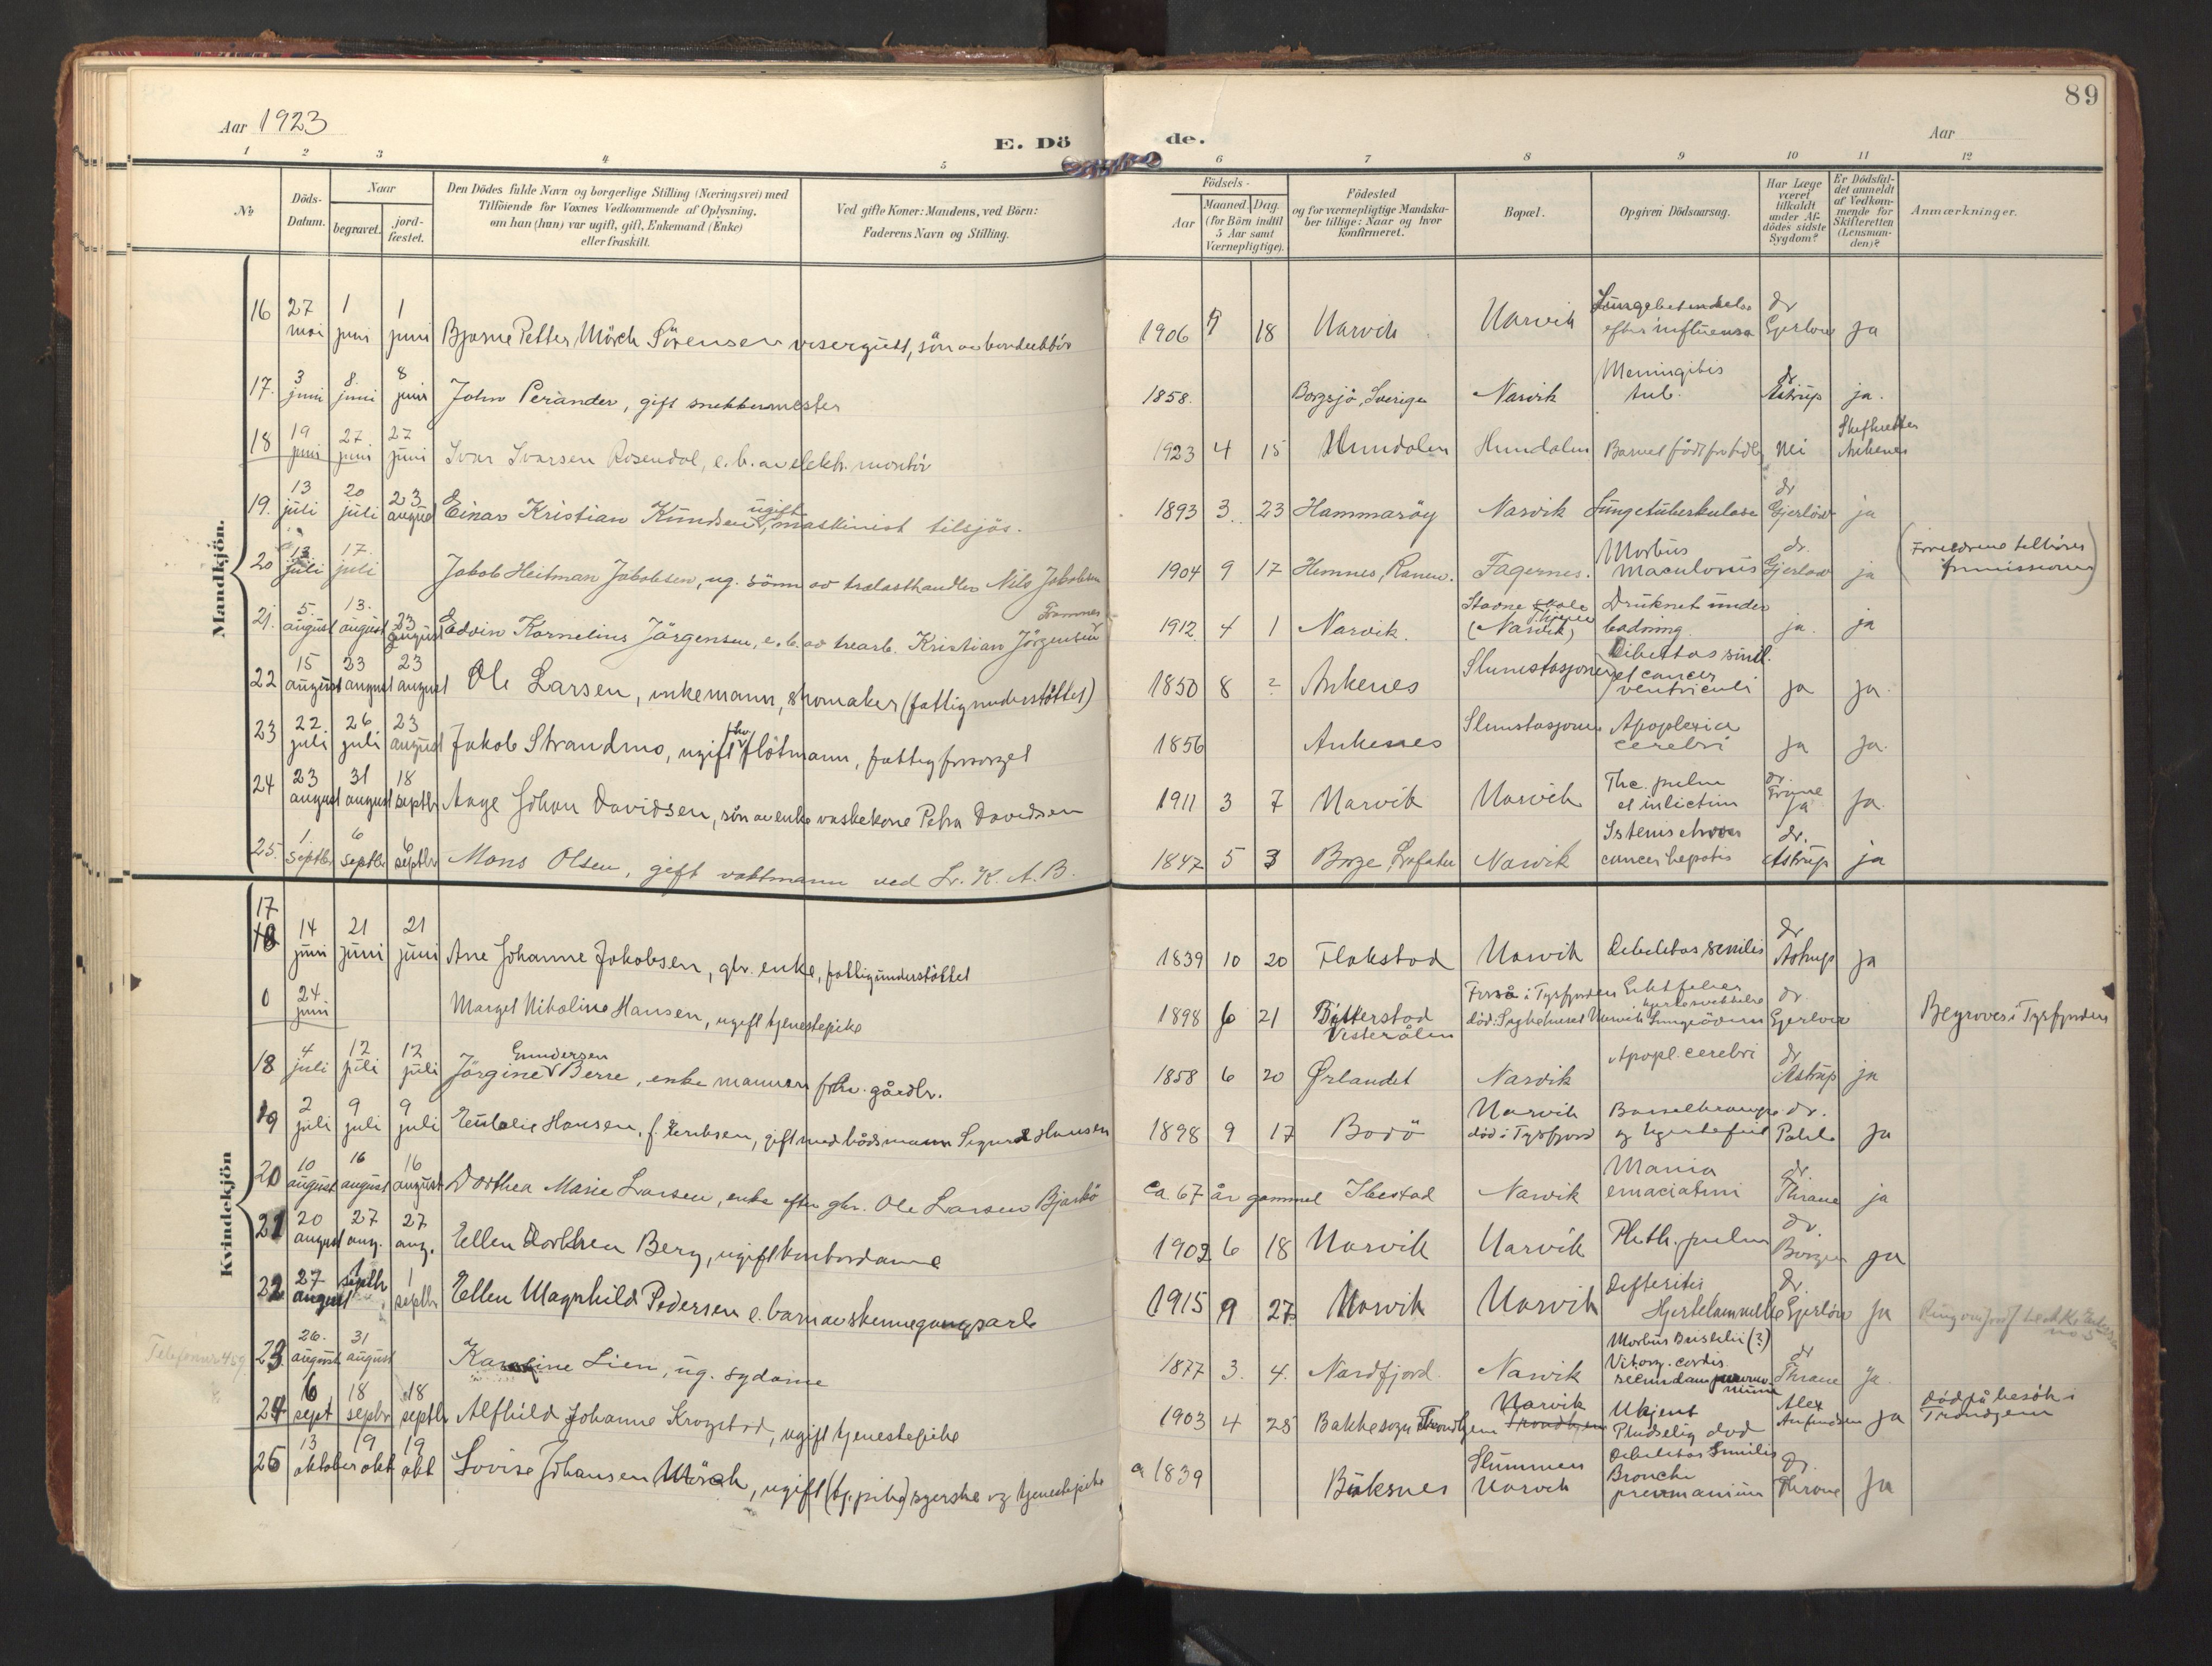 89
Aar 1923
E. Dö de.
Aar
1 2 3 4 5 6 7 8 9 10 11 12
№
Döds-Datum.
Naar
begravet.
jord-fæstet.
Den Dödes fulde Navn og borgerlige Stilling (Næringsvei) med
Tilföiende for Voxnes Vedkommende af Oplysning,
om han (hun) var ugift, gift, Enkemand (Enke)
eller fraskilt.
Ved gifte Koner: Mandens, ved Börn:
Faderens Navn og Stilling.
Födsels-
Aar
Maaned. Dag.
(for Börn indtil
5 Aar samt
Værnepligtige).
Födested
og for værnepligtige Mandska-
ber tillige: Naar og hvor
konfirmeret.
Bopæl.
Opgiven Dödsaarsag.
Har Læge
været
tilkaldt
under Af-
dödes sidste
Sygdom?
Er Dödsfal-
det anmeldt
af Vedkom-
mende for
Skifteretten
(Lensman-
den)?
Anmærkninger.
Mandkjön.
16 27 mai 1 juni 1 juni Bjarne Petter Mörch Sörensen visergutt, sön av 1906 9 18 Narvik Narvik Lungebetændelse efter influensa dr Gjerløw ja
17. 3 juni 8. juni 8 juni John Perander, gift snekkermester 1858. Borgsjö, Sverige Narvik Meningitis tub. dr Astrup ja.
18 19 juni 27 juni 27 juni Ivar Ivarsen Rosendal, e. b. av elektr. montör 1923 4 15 Hundalen Hundalen Barnet födt for tidl. Nei Skifteretten Ankenes
19. 13 juli 20 juli 23 august Einar Kristian Knudsen, ugift maskinist tilsjös. 1893 3. 23 Hammaröy Narvik Lungetuberkulose dr Gjerløw ja
20 13 juli 17. juli Jakob Heitman Jakobsen, ug. sönn av trælasthandler Nils Jakobsen 1904 9 17 Hemnes, Ranen. Fagernes. Morbus maculosus dr. Gjerløw ja (Foreldrene tilhører
21. 5. august 13. august 23 august Edvin Kornelius Jörgensen, e. b. av trearb. Kristian Jörgensen 1912 4 1 Narvik. (Narvik) Druknet under badning. ja. ja
22 15 august 23 august 23 august Ole Larsen, enkemann, skomaker (fattigunderstöttet) 1850 8 ? Ankenes Slumstasjonen Debilitas senil. et cancer ventriculi ja ja.
23 22. juli 26 juli 23 august Jakob Strandmo, ugift fhv flötmann, fattigforsorget 1856 Ankenes Slumstasjonen Apoplexia cerebri ja ja.
24 23 august 31 august 18 septbr Aage Johan Davidsen, sön av enke vaskekone Petra Davidsen 1911 3 7 Narvik Narvik Tbc. pulm et dr. ja ja.
25. 1. septbr 6 septbr 6 septbr Mons Olsen, gift vaktmann ved L. K. A. B. 1847 5 3 Borge, Lofoten Narvik cancer hepatis dr. Astrup ja
Kvindekjön
17 18 14 juni 21 juni 21 juni Ane Johanne Jakobsen, gbr. enke, fattigunderstöttet 1839 10 20 Flakstad Narvik Debilitas senilis dr Astrup ja
0 24 juni Marget Nikoline Hansen, ugift tjenestepike 1898 6 21 Bitterstad Vesterålen i Tysfjorden död: Sykehuset Narvik dr. Gjerløw Begraves i Tysfjorden
18 4 juli 12 juli 12 juli Jörgine Gundersen Berre, enke manns fhv. gårdbr. 1858 6 20 Ørlandet Narvik Apopl. cerebri dr Astrup ja
19 2 juli 9 juli 9 juli Eulalie Hansen, f. Eriksen, gift med bådsmann Sigurd Hansen 1898 9 17 Bodö Narvik död i Tysfjord Barselkrampe og hjertefeil dr. ja
20 10 august 16 august 16 august Dorthea Marie Larsen, enke efter gbr. Ole Larsen Bjarkö Ca. 67 år gammel Ibestad Narvik Mania dr. Thrane ja
21 20 august 27 aug. 27 aug. Ellen Dorthea Berg, ugift kontordame 1902 6 18 Narvik Narvik Phth. pulm dr. Borgen ja
22 27 august 1 septbr 1 septbr Ellen Magnhild Pedersen e. barn av skinnegangsarb 1915 9 27 Narvik Narvik Difteritis Hjertelammelse dr. Gjerløw ja
Telefonnr 459.
23. 26. august 31 august Karoline Lien, ug. sydame 1877 3. 4. Nordfjord. Narvik Morbus (?) Vit. org. cordis dr Thrane ja.
24 6 sept 18 septbr 18 septbr Alfhild Johanne Krogstad, ugift tjenestepike 1903 4 25 Bakke sogn Trondhjem Narvik Trondhjem Ukjent Pludselig död Alex ja död på besök i Trondhjem
25 13 oktober 19 okt 19 okt Lovise Johansen Mörch, ugift (tj. pike) syerske og tjenestepike ca 1839 Buksnes Slummen Narvik Debilitas senilis Bronche dr. Thrane ja